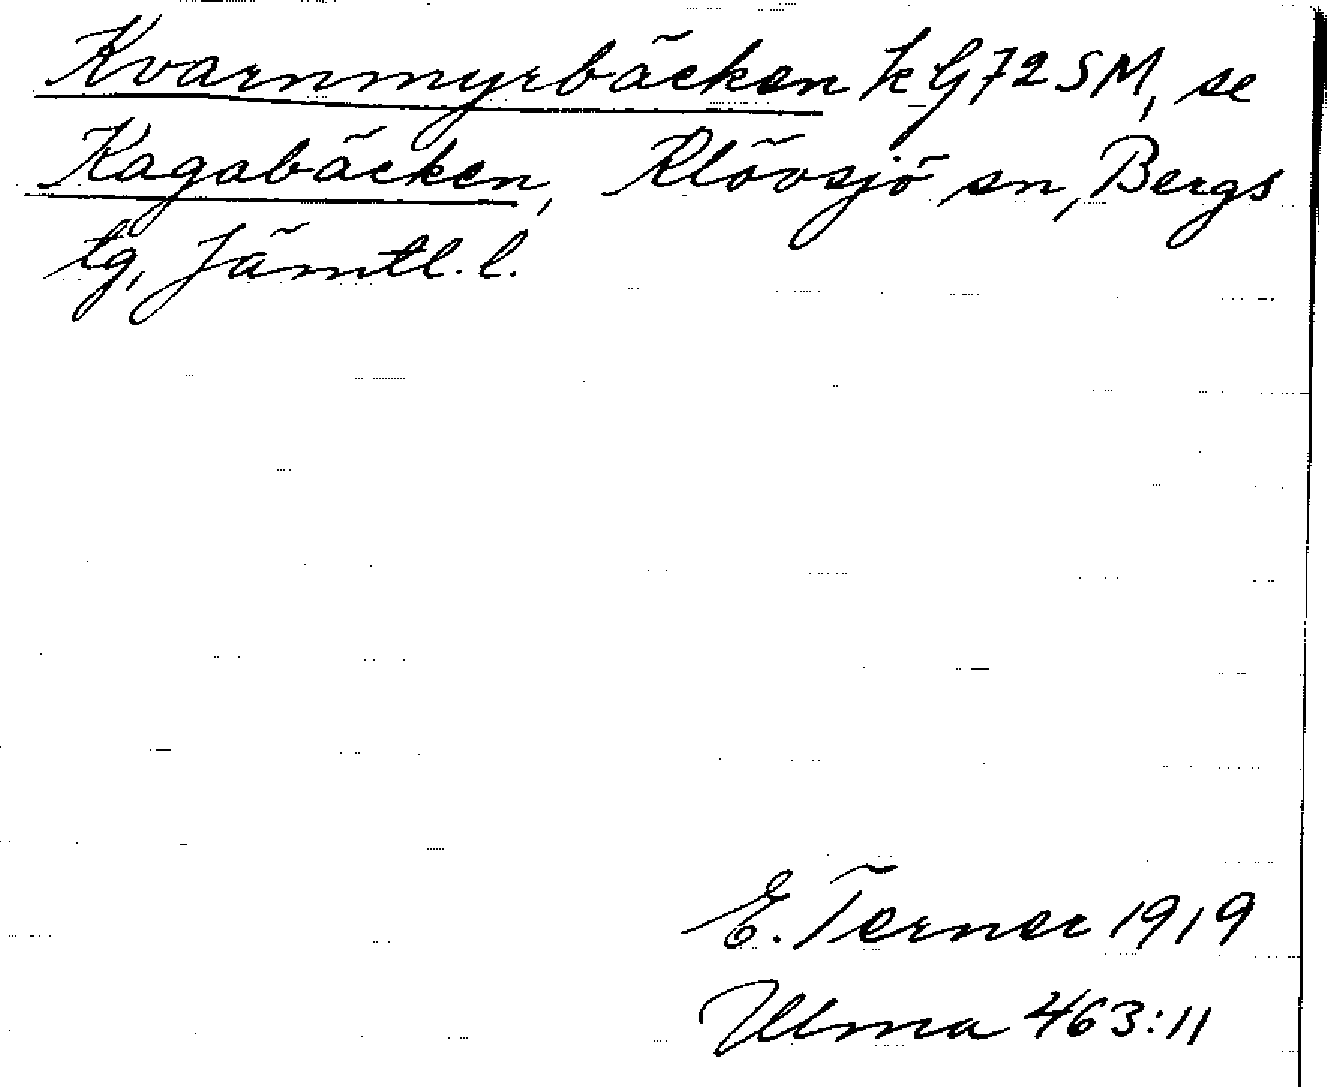 Kvarnmyrbäcken k G72SM, se
Kagabäcken, Klövsjö sn, Bergs
tg, Jämtl. l.
E. Terner 1919
Ulma 463:11